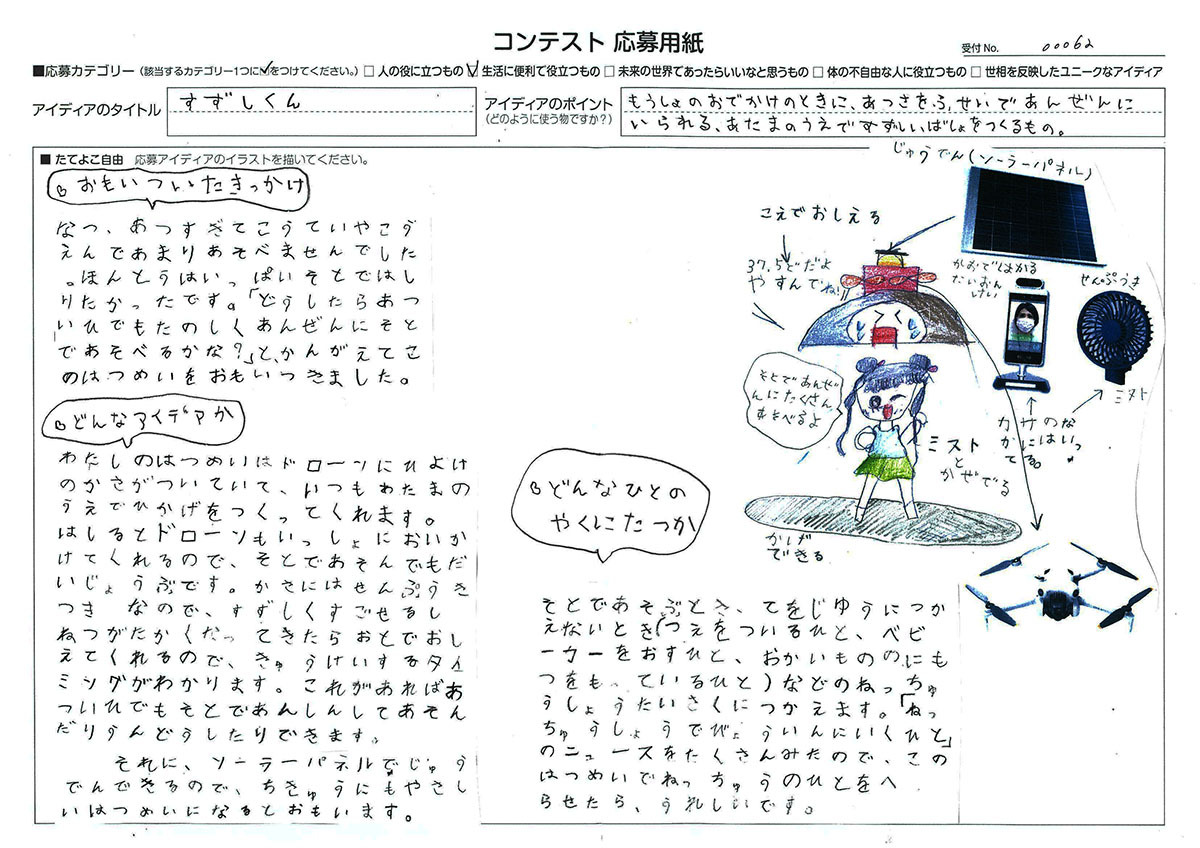 コンテスト 応募用紙
受付 No. 00062
■応募カテゴリー（該当するカテゴリー1つに✓をつけてください。）□ 人の役に立つもの ☑ 生活に便利で役立つもの □ 未来の世界であったらいいなと思うもの □ 体の不自由な人に役立つもの □ 世相を反映したユニークなアイディア
アイディアのタイトル
すずしくん
アイディアのポイント
（どのように使う物ですか？）
もうしょのおでかけのときに、あつさをふせいであんぜんに
いられる、あたまのうえですずしいばしょをつくるもの。
■ たてよこ自由 応募アイディアのイラストを描いてください。
おもいついたきっかけ
なつ、あつすぎてこうていやこう
えんであまりあそべませんでした
。ほんとうはいっぱいそとではし
りたかったです。「どうしたらあつ
いひでもたのしくあんぜんにそと
であそべるかな？」と、かんがえてこ
のはつめいをおもいつきました。
どんなアイデアか
わたしのはつめいはドローンにひよけ
のかさがついていて、いつもあたまの
うえでひかげをつくってくれます。
はしるとドローンもいっしょにおいか
けてくれるので、そとであそんでもだ
いじょうぶです。かさにはせんぷうき
つき なので、すずしくすごせるし
ねつがたかくなってきたらおとでおし
えてくれるので、きゅうけいするタイ
ミングがわかります。これがあればあ
ついひでもそとであんしんしてあそん
だりうんどうしたりできます。
それに、ソーラーパネルでじゅう
でんできるので、ちきゅうにもやさし
いはつめいになるとおもいます。
じゅうでん(ソーラーパネル)
こえでおしえる
37.5どだよ
やすんでね!!
かおではかる
たいおん
けい
せんぷうき
ミスト
カサのな
かにはいっ
てる。
そとであんぜ
んにたくさん
あそべるよ
ミスト
と
かぜでる
かげ
できる
どんなひとの
やくにたつか
そとであそぶとき、てをじゆうにつか
えないとき(つえをついるひと、ベビ
ーカーをおすひと、おかいもののにも
つをもっているひと)などのねっちゅ
うしょうたいさくにつかえます。「ねっ
ちゅうしょうでびょういんにいくひと」
のニュースをたくさんみたので、この
はつめいでねっちゅうのひとをへ
らせたら、うれしいです。